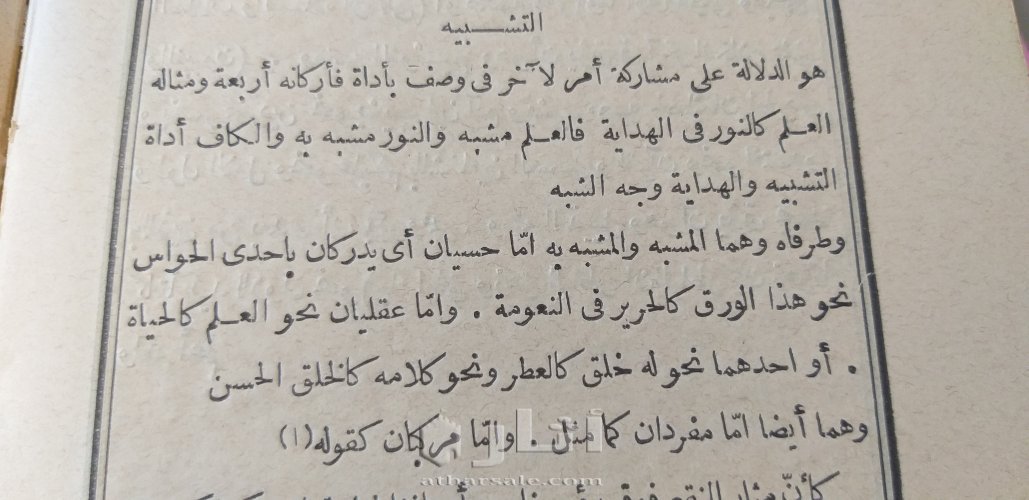 التشبيه
هو الدلالة على مشاركة أمر لآخر فى وصف بأداة فأركانه أربعة ومثاله
العلم كالنور فى الهداية فالعلم مشبه والنور مشبه به والكاف أداة
التشبيه والهداية وجه الشبه
وطرفاه وهما المشبه والمشبه به امّا حسيان أى يدركان باحدى الحواس
نحو هذا الورق كالحرير فى النعومة . وامّا عقليان نحو العلم كالحياة
. أو احدهما نحو له خلق كالعطر ونحو كلامه كالخلق الحسن
وهما أيضا امّا مفردان كما مثل . وامّا مركبان كقوله (١)
كأنّ مثار النقع فوق
أثار
atharsale.com